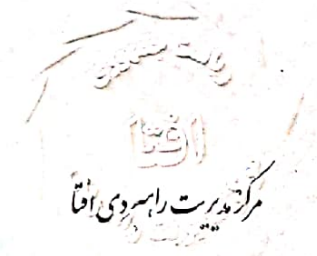 ریاست جمهوری
افتا
مرکز مدیریت راهبردی افتا